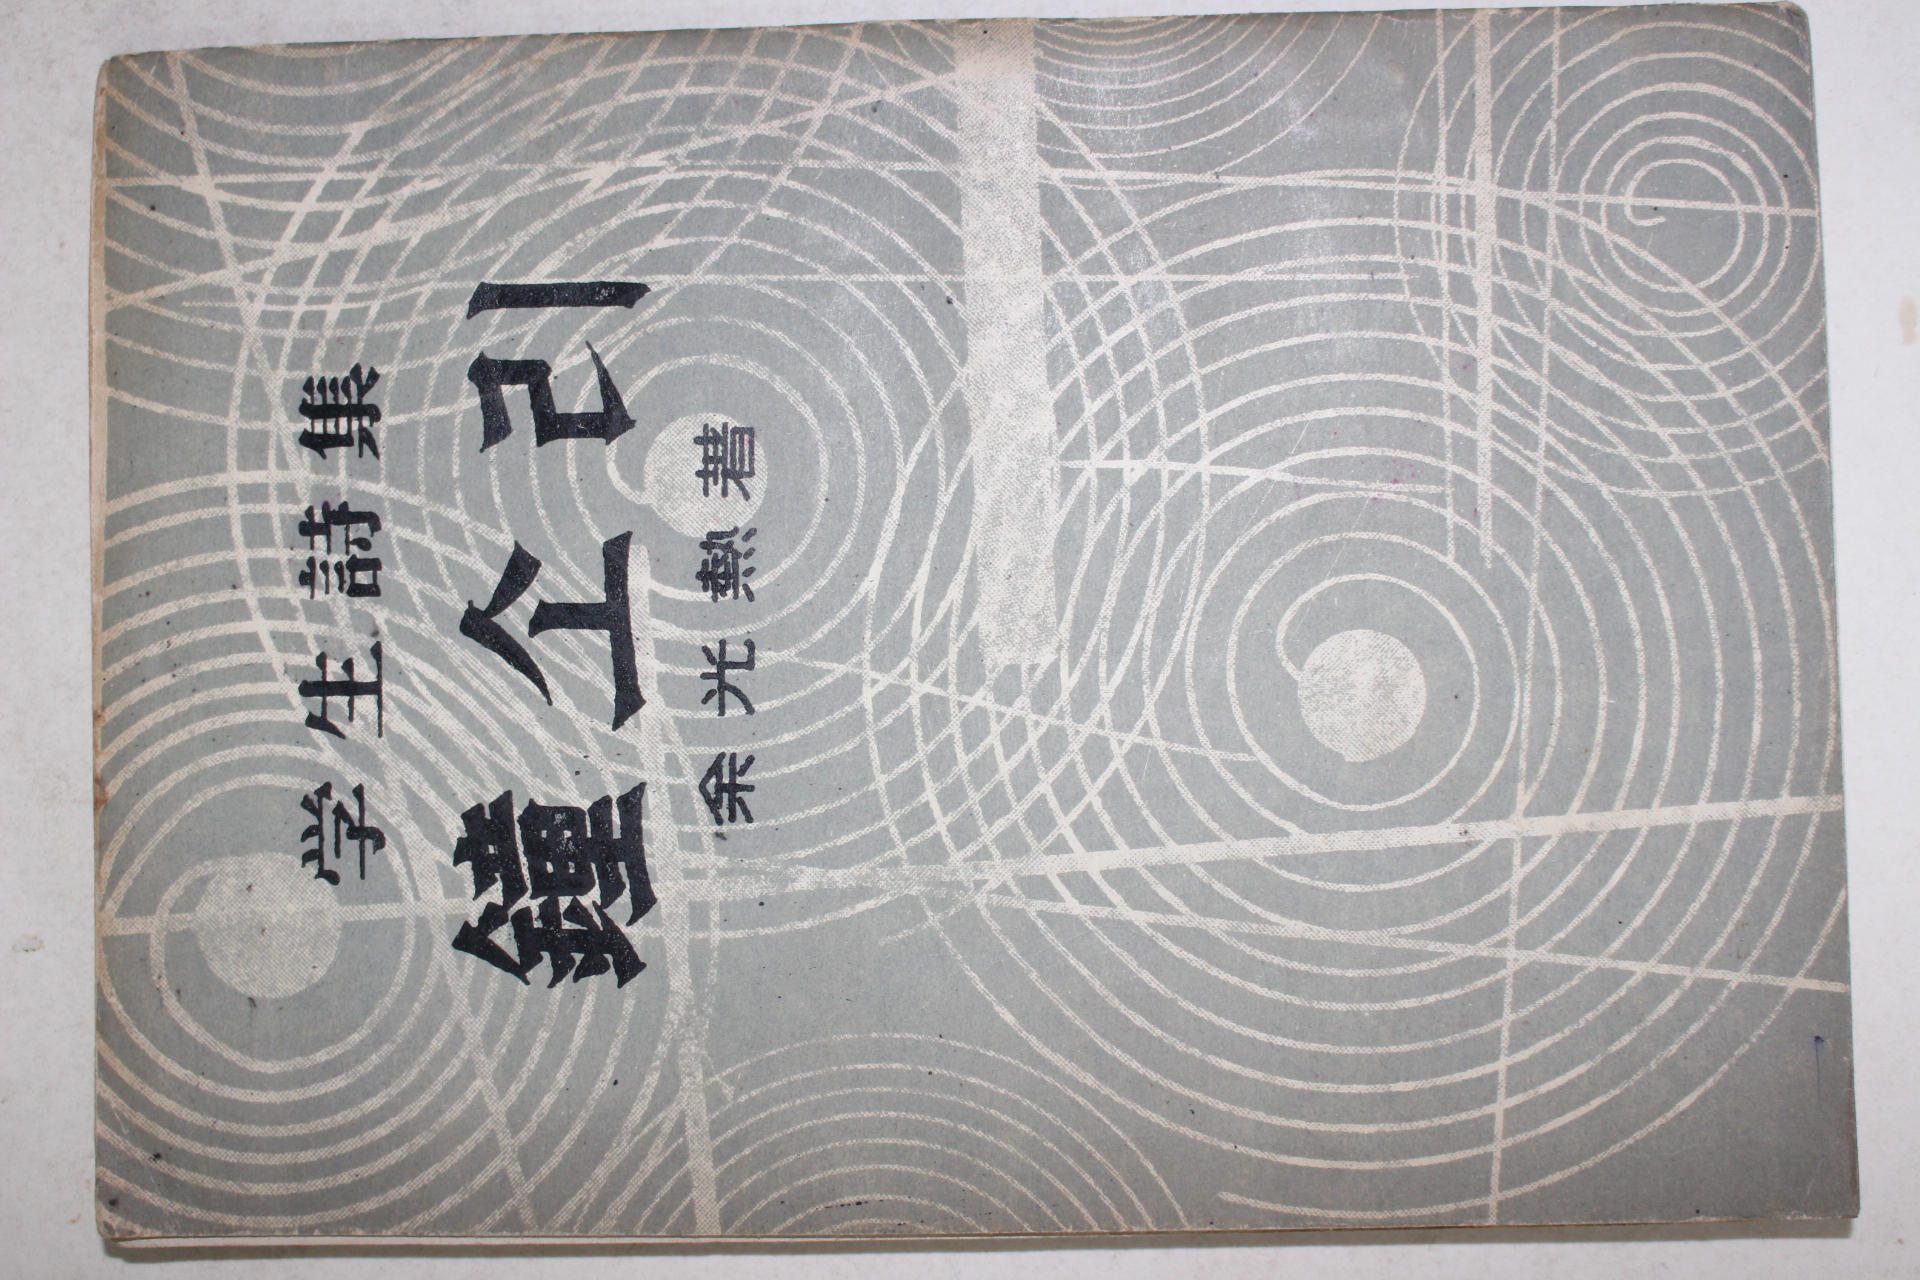 学生詩集
鐘소리
余光熱著